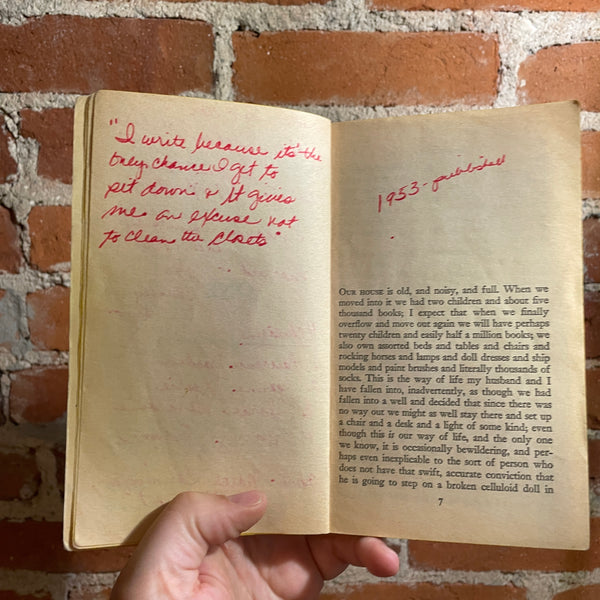 "I write because it's the
only chance I get to
sit down & it gives
me an excuse not
to clean the closets"
1953-published
OUR HOUSE is old, and noisy, and full. When we
moved into it we had two children and about five
thousand books; I expect that when we finally
overflow and move out again we will have perhaps
twenty children and easily half a million books; we
also own assorted beds and tables and chairs and
rocking horses and lamps and doll dresses and ship
models and paint brushes and literally thousands of
socks. This is the way of life my husband and I
have fallen into, inadvertently, as though we had
fallen into a well and decided that since there was
no way out we might as well stay there and set up
a chair and a desk and a light of some kind; even
though this is our way of life, and the only one
we know, it is occasionally bewildering, and per-
haps even inexplicable to the sort of person who
does not have that swift, accurate conviction that
he is going to step on a broken celluloid doll in
7